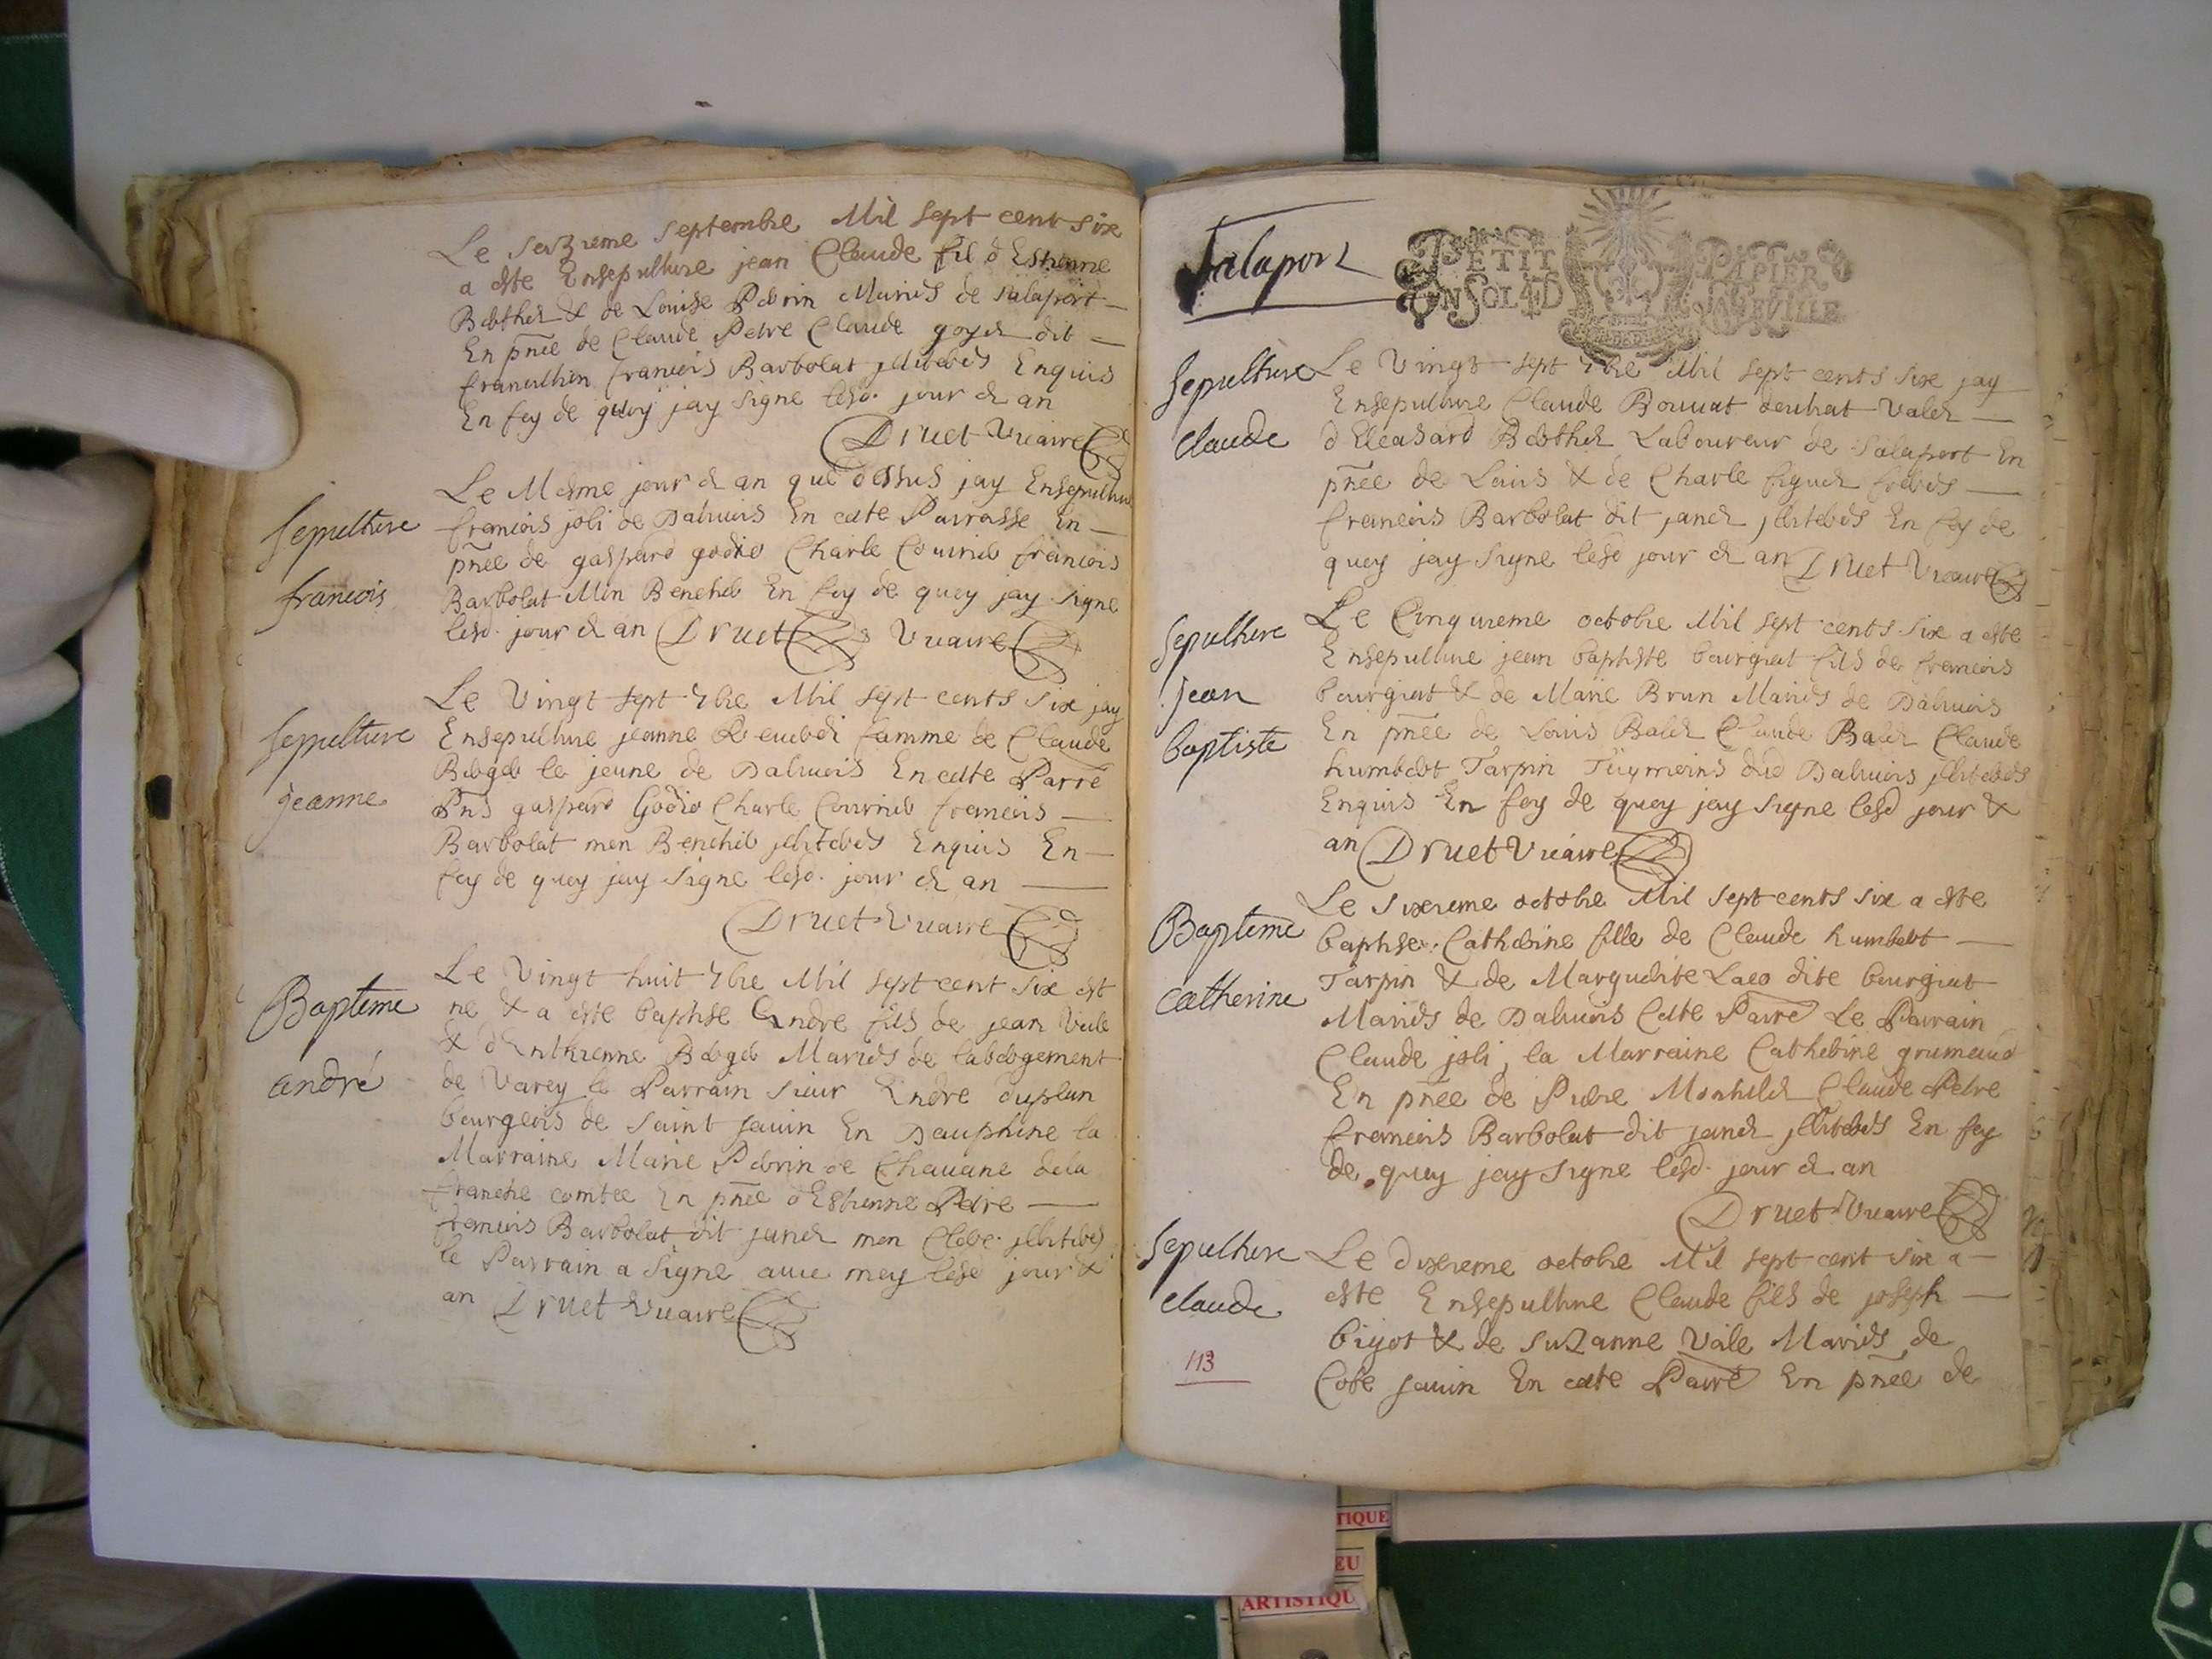 Le seizieme septembre Mil sept cent six
a este Ensepulture jean Claude fil d Estienne
Berthet & de Louise Perrin Mariés de Salaport
En pnce de Claude Petre Claude goyet dit
francois Barbolat jlliterés Enquis
En foy de quoy jay signe lesd. jour et an
Druet Vicaire
Sepulture
francois
Le Mesme jour et an que dessus jay Ensepulture
francois joli de Dalivois En cette Parrosse En
pnce de gaspard godio Charle Couvrier francois
Barbolat Mon Bencher En foy de quoy jay signe
lesd. jour et an Druet Vicaire
Sepulture
jeanne
Le Vingt sept 7bre Mil sept cents six jay
Ensepulture jeanne famme de Claude
Berger le jeune de Dalivois En cette Parre
Pns gaspard Godio Charle Couvrier francois
Barbolat mon Bencher jlliterés Enquis En
foy de quoy jay signe lesd. jour et an
Druet Vicaire
Bapteme
andré
Le Vingt huit 7bre Mil sept cent six est
ne & a este baptise Andre fils de jean Vale
& d Berger Mariés de labergement
de Varey le Parrain sieur Endre duplan
bourgeois de saint savin En Dauphine la
Marraine Marie Perrin de Chavane dela
franche comtee En pnce d Estienne Petre
francois Barbolat dit janet mon Clerc jlliteres
le Parrain a signe avec moy lesd jour &
an Druet Vicaire
Salaport
PETIT PAPIER
UN SOL 4 D LA FEVILLE
Sepulture
claude
Le Vingt sept 7bre Mil sept cents six jay
Ensepulture Claude Bouvat Valet
d Eleasard Berthet Laboureur de Salaport En
pnce de Louis & de Charle figuet freres
francois Barbolat dit janet jlliterés En foy de
quoy jay signe lesd jour et an Druet Vicaire
Sepulture
jean
baptiste
Le Cinquieme octobre Mil sept cents six a este
Ensepulture jean baptiste bourgiat fils de francois
bourgiat & de Marie Brun Mariés de Dalivois
En pnce de Louis Balet Claude Balet Claude
humbert Tarpin Dalivois jlliterés
Enquis En foy de quoy jay signe lesd jour &
an Druet Vicaire
Bapteme
catherine
Le sixieme octobre Mil sept cents six a este
baptise Catherine fille de Claude humbert
Tarpin & de Marguerite Laco dite bourgiat
Mariés de Dalivois Cette Parre Le Parrain
Claude joli, la Marraine Catherine grumaud
En pnce de Pierre Monhilet Claude Petre
francois Barbolat dit janet jlliterés En foy
de quoy jay signe lesd. jour et an
Druet Vicaire
Sepulture
claude
Le dixieme octobre Mil sept cent six a
este Ensepulture Claude fils de joseph
bigot & de suzanne Vale Mariés de
Cote savin En cette Parre En pnce de
113
TIQUE
EU
ARTISTIQU